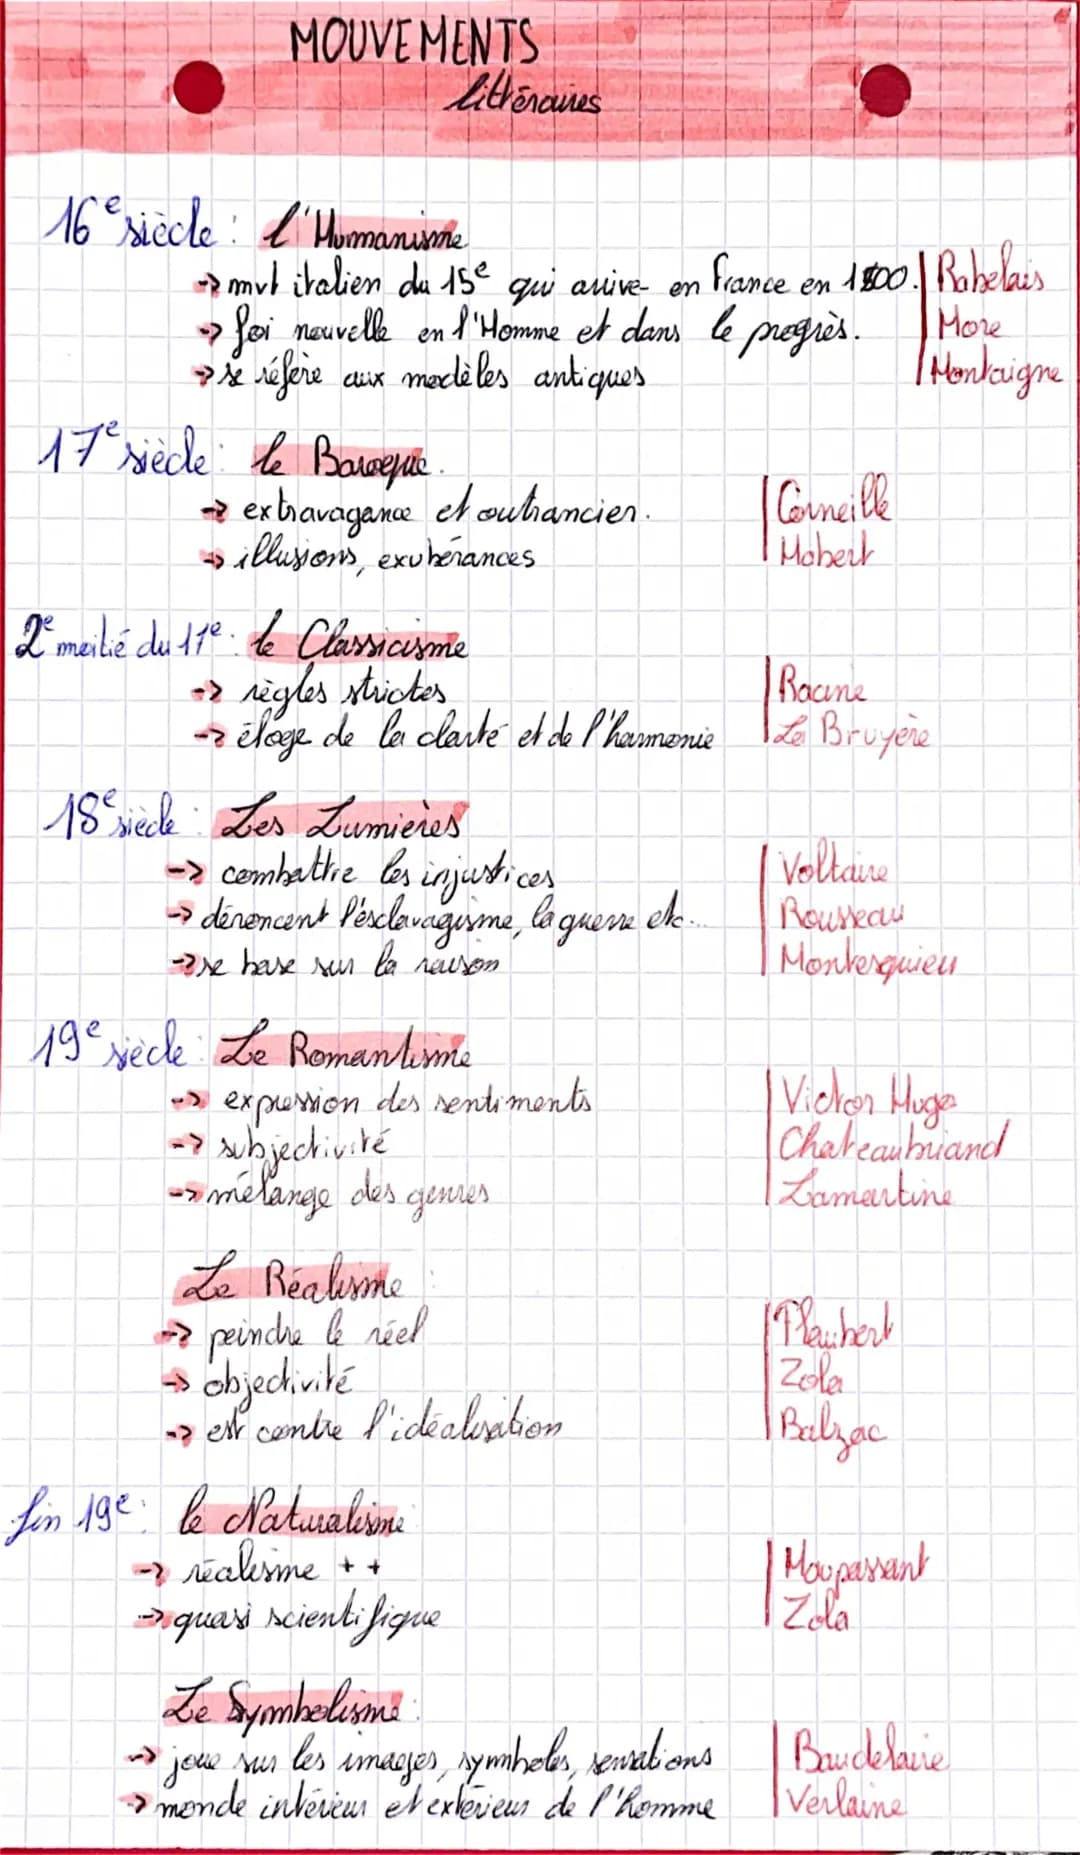 MOUVEMENTS
littéraires
16e siècle : l'Humanisme
-> mvt italien du 15e qui arrive en France en 1500. Rabelais
-> foi nouvelle en l'Homme et dans le progrès. More
-> se réfère aux modèles antiques Montaigne
17e siècle : le Baroque.
-> extravagance et outrancier. Corneille
-> illusions, exubérances Mobert
2e moitié du 17e : le Classicisme
-> règles strictes Racine
-> éloge de la clarté et de l'harmonie La Bruyère
18e siècle : Les Lumières
-> combattre les injustices Voltaire
-> dénoncent l'ésclavagisme, la guerre etc... Rousseau
-> se base sur la raison Montesquieu
19e siècle : Le Romantisme
-> expression des sentiments Victor Hugo
-> subjectivité Chateaubriand
-> mélange des genres Lamartine
Le Réalisme :
-> peindre le réel Flaubert
-> objectivité Zola
-> est contre l'idéalisation Balzac
fin 19e : le Naturalisme
-> réalisme ++ Maupassant
-> quasi scientifique Zola
Le Symbolisme :
-> joue sur les images, symboles, sensations Baudelaire
-> monde intérieur et extérieur de l'homme Verlaine